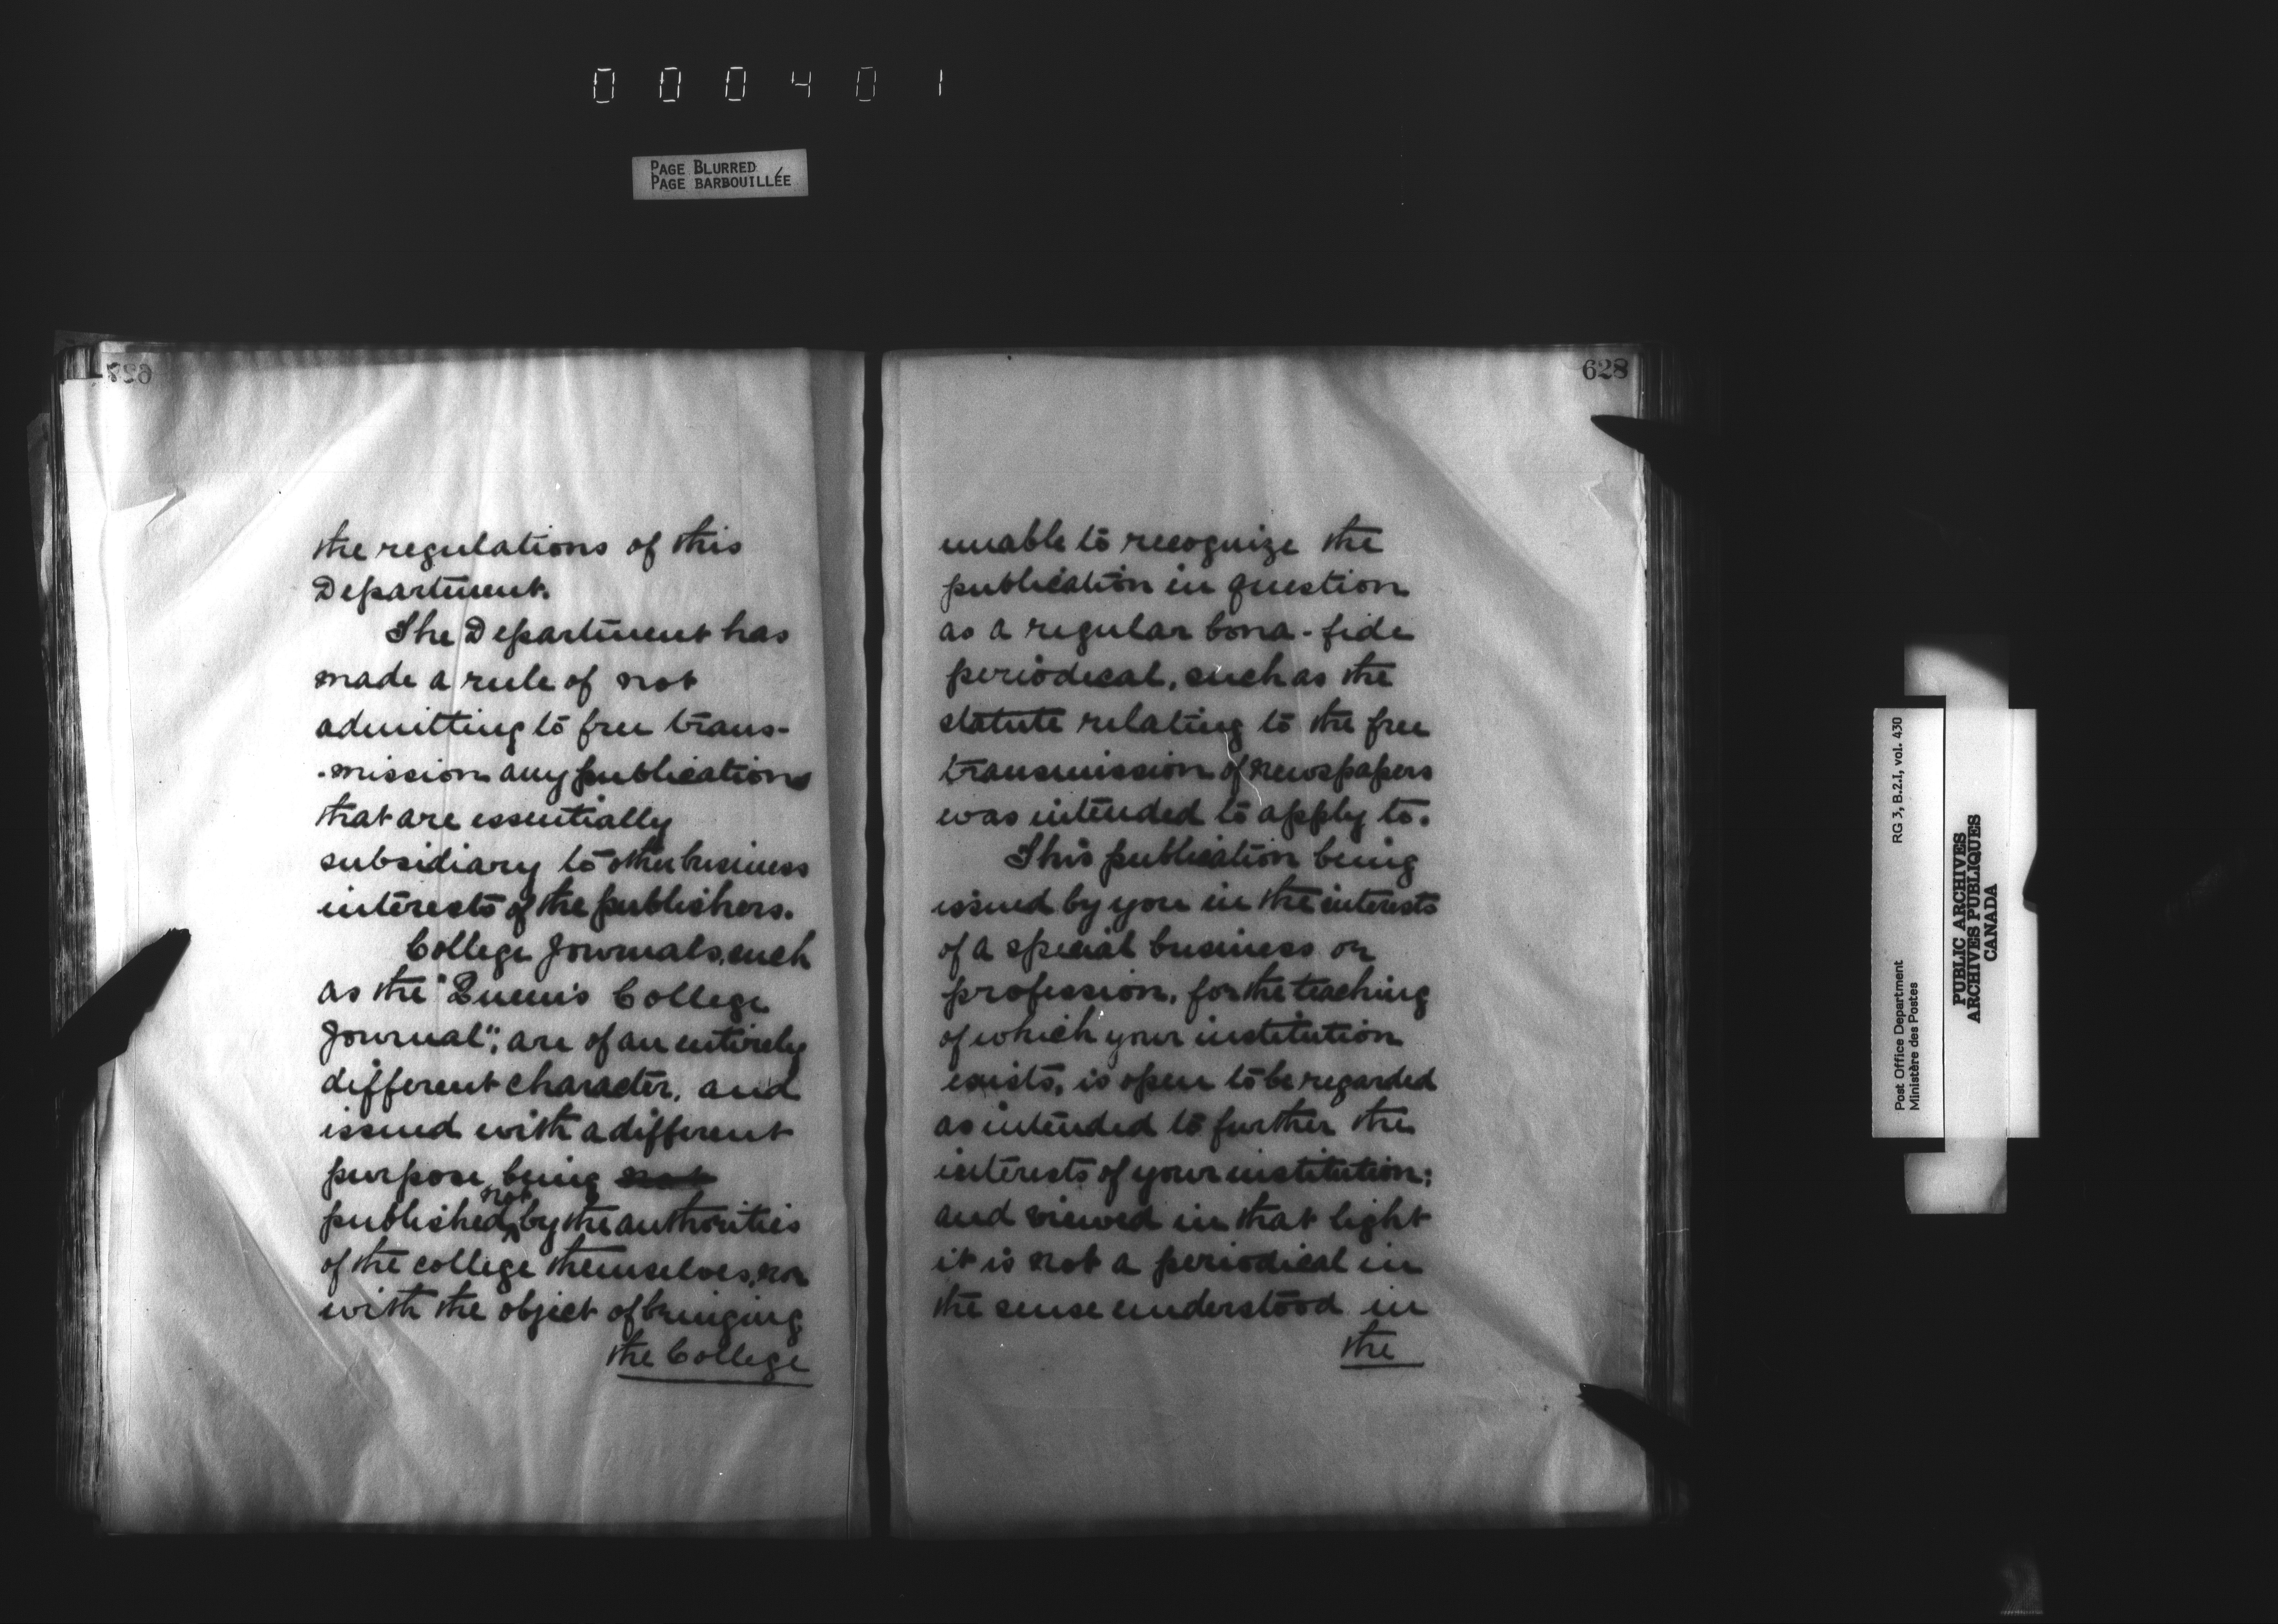 000401
PAGE BLURRED
PAGE BARBOUILLÉE
628
the regulations of this
Department.
The Department has
made a rule of not
admitting to free trans-
-mission any publications
that are essentially
subsidiary to other business
interests of the publishers.
College Journals, such
as the "Queen's College
Journal", are of an entirely
different character, and
issued with a different
purpose, being not
published not by the authorities
of the college themselves, nor
with the object of bringing
the College
628
unable to recognize the
publication in question
as a regular bona-fide
periodical, such as the
statute relating to the free
transmission of newspapers
was intended to apply to.
This publication being
issued by you in the interests
of a special business or
profession, for the teaching
of which your institution
exists, is open to be regarded
as intended to further the
interests of your institution;
and viewed in that light
it is not a periodical in
the sense understood in
the
Post Office Department
Ministère des Postes
RG 3, B.2.I, vol. 430
PUBLIC ARCHIVES
ARCHIVES PUBLIQUES
CANADA